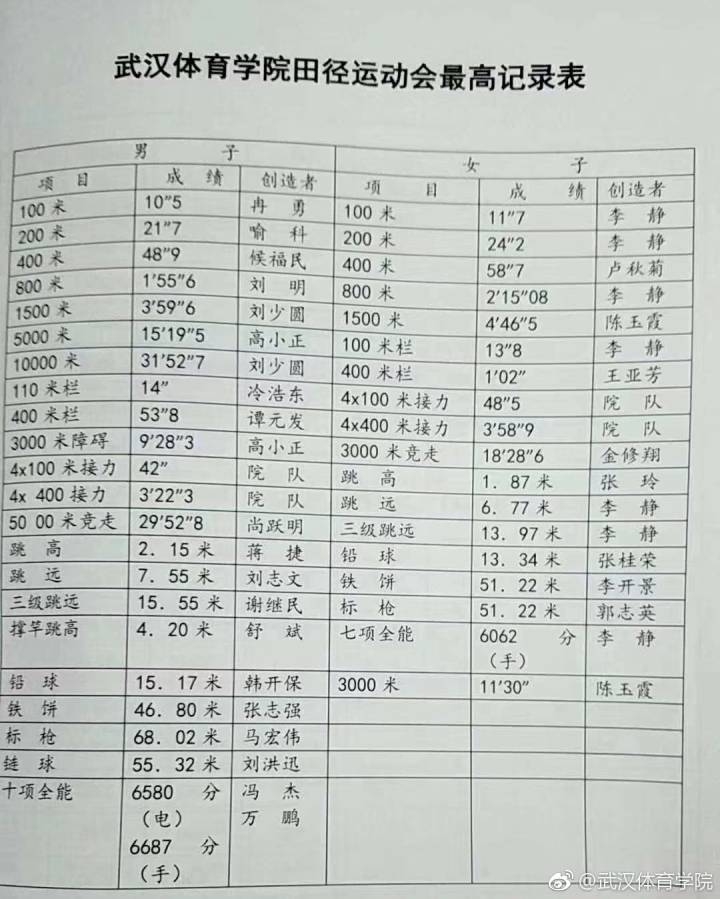 武汉体育学院田径运动会最高记录表
男 子 女 子
项 目 成 绩 创造者 项 目 成 绩 创造者
100 米 10″5 冉 勇 100 米 11″7 李 静
200 米 21″7 喻 科 200 米 24″2 李 静
400 米 48″9 候福民 400 米 58″7 卢秋菊
800 米 1′55″6 刘 明 800 米 2′15″08 李 静
1500 米 3′59″6 刘少圆 1500 米 4′46″5 陈玉霞
5000 米 15′19″5 高小正 100 米栏 13″8 李 静
10000 米 31′52″7 刘少圆 400 米栏 1′02″ 王亚芳
110 米栏 14″ 冷浩东 4x100 米接力 48″5 院 队
400 米栏 53″8 谭元发 4x400 米接力 3′58″9 院 队
3000 米障碍 9′28″3 高小正 3000 米竞走 18′28″6 金修翔
4x100 米接力 42″ 院 队 跳 高 1. 87 米 张 玲
4x 400 接力 3′22″3 院 队 跳 远 6. 77 米 李 静
50 00 米竞走 29′52″8 尚跃明 三级跳远 13. 97 米 李 静
跳 高 2. 15 米 蒋 捷 铅 球 13. 34 米 张桂荣
跳 远 7. 55 米 刘志文 铁 饼 51. 22 米 李开景
三级跳远 15. 55 米 谢继民 标 枪 51. 22 米 郭志英
撑竿跳高 4. 20 米 舒 斌 七项全能 6062 分 李 静
（手）
铅 球 15. 17 米 韩开保 3000 米 11′30″ 陈玉霞
铁 饼 46. 80 米 张志强
标 枪 68. 02 米 马宏伟
链 球 55. 32 米 刘洪迅
十项全能 6580 分 冯 杰
（电） 万 鹏
6687 分
（手）
@武汉体育学院